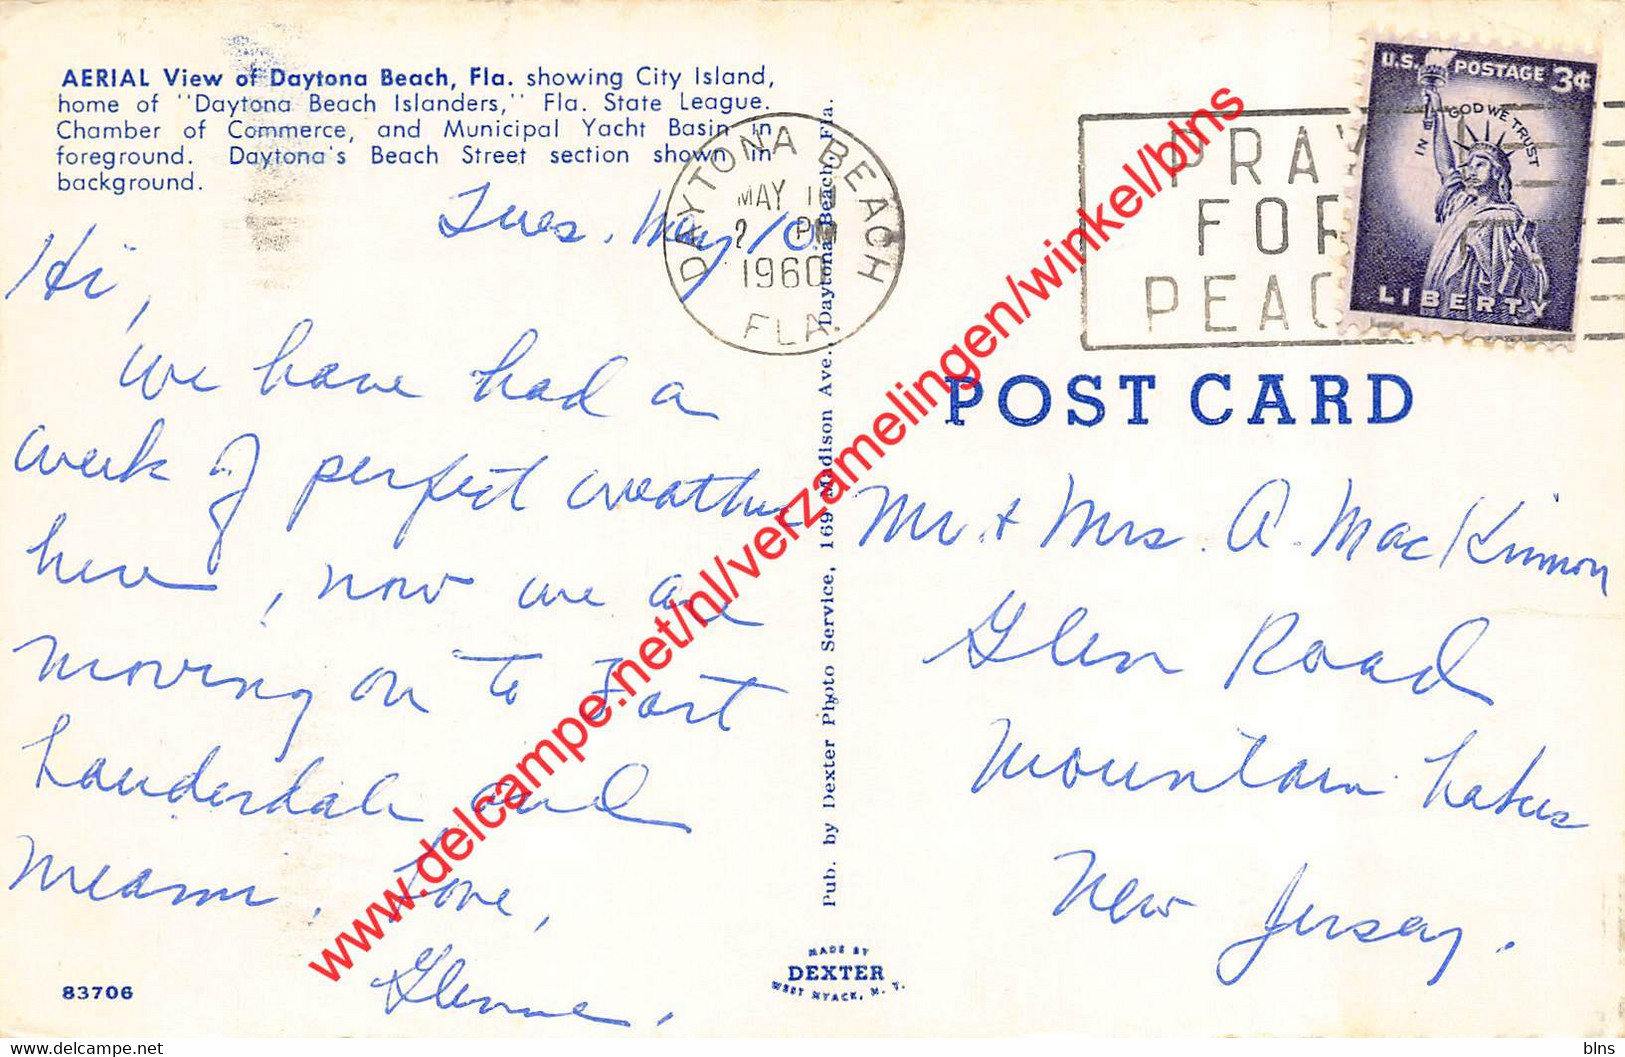 AERIAL View of Daytona Beach, Fla. showing City Island,
home of "Daytona Beach Islanders," Fla. State League.
Chamber of Commerce, and Municipal Yacht Basin in
foreground. Daytona's Beach Street section shown in
background.
Tues. May 10
Hi,
We have had a
week of perfect weather
here, now we are
moving on to Fort
Lauderdale and
Miami. Love,
Glenne.
83706
DAYTONA BEACH
MAY 10
2 PM
1960
FLA.
Pub. by Dexter Photo Service, 169 Madison Ave., Daytona Beach, Fla.
MADE BY
DEXTER
WEST NYACK, N. Y.
PRAY
FOR
PEACE
U.S. POSTAGE 3¢
IN GOD WE TRUST
LIBERTY
POST CARD
Mr. + Mrs. A. MacKinnon
Glen Road
Mountain Lakes
New Jersey.
www.delcampe.net/nl/verzamelingen/winkel/blns
blns @ Delcampe.net / blns - Contact blns on Delcampe Website
blns